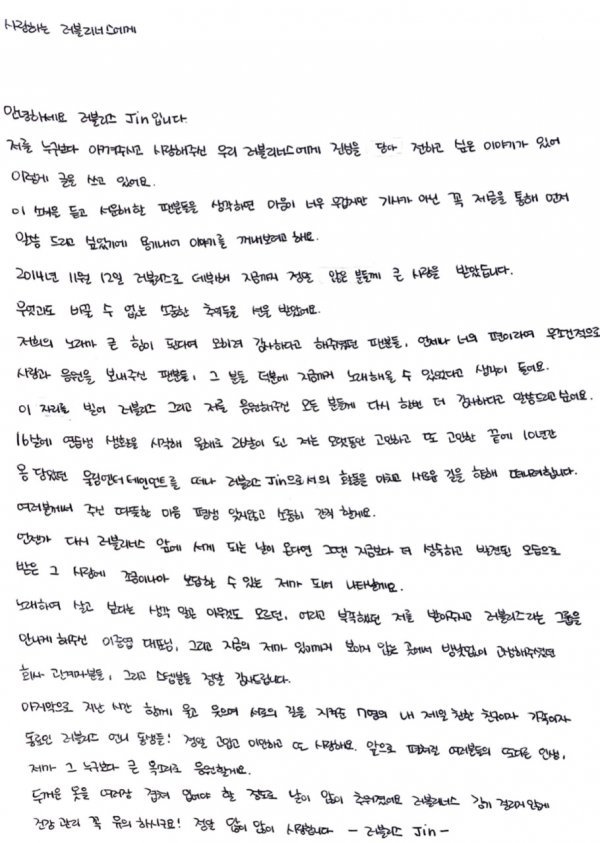 사랑하는 러블리너스에게
안녕하세요 러블리즈 Jin입니다.
저를 누구보다 아껴주시고 사랑해주신 우리 러블리너스에게 진심을 담아 전하고 싶은 이야기가 있어
이렇게 글을 쓰고 있어요.
이 소식을 듣고 서운해할 팬분들을 생각하면 마음이 너무 무겁지만 기사가 아닌 꼭 저를 통해 먼저
말씀 드리고 싶었기에 용기내어 이야기를 꺼내보려고 해요.
2014년 11월 12일 러블리즈로 데뷔해 지금까지 정말 많은 분들께 큰 사랑을 받았습니다.
무엇과도 바꿀 수 없는 소중한 추억들을 선물 받았어요.
저희의 노래가 큰 힘이 된다며 오히려 감사하다고 해주셨던 팬분들, 언제나 너의 편이라며 무조건적으로
사랑과 응원을 보내주신 팬분들, 그 분들 덕분에 지금까지 노래해올 수 있었다고 생각이 들어요.
이 자리를 빌어 러블리즈 그리고 저를 응원해주신 모든 분들께 다시 한번 더 감사하다고 말씀드리고싶어요.
16살에 연습생 생활을 시작해 올해로 26살이 된 저는 오랫동안 고민하고 또 고민한 끝에 10년간
몸 담았던 울림엔터테인먼트를 떠나 러블리즈 Jin으로서의 활동을 마치고 새로운 길을 향해 떠나려합니다.
여러분께서 주신 따뜻한 마음 평생 잊지않고 소중히 간직 할게요.
언젠가 다시 러블리너스 앞에 서게 되는 날이 온다면 그땐 지금보다 더 성숙하고 발전된 모습으로
받은 그 사랑에 조금이나마 보답할 수 있는 제가 되어 나타날게요.
노래하며 살고 싶다는 생각 말곤 아무것도 모르던, 어리고 부족했던 저를 받아주시고 러블리즈라는 그룹을
만나게 해주신 이중엽 대표님, 그리고 지금의 제가 있기까지 보이지 않는 곳에서 밤낮없이 고생해주셨던
회사 관계자분들, 그리고 스텝분들 정말 감사드립니다.
마지막으로 지난 시간 함께 울고 웃으며 서로의 곁을 지켜준 7명의 내 제일 친한 친구이자 가족이자
동료인 러블리즈 언니 동생들! 정말 고맙고 미안하고 또 사랑해요. 앞으로 펼쳐질 여러분들의 또다른 인생,
제가 그 누구보다 큰 목소리로 응원할게요.
두꺼운 옷을 여러장 겹쳐 입어야 할 정도로 날이 많이 추워졌어요 러블리너스 감기 걸리지 않게
건강 관리 꼭 유의 하시구요! 정말 많이 많이 사랑합니다 - 러블리즈 Jin -